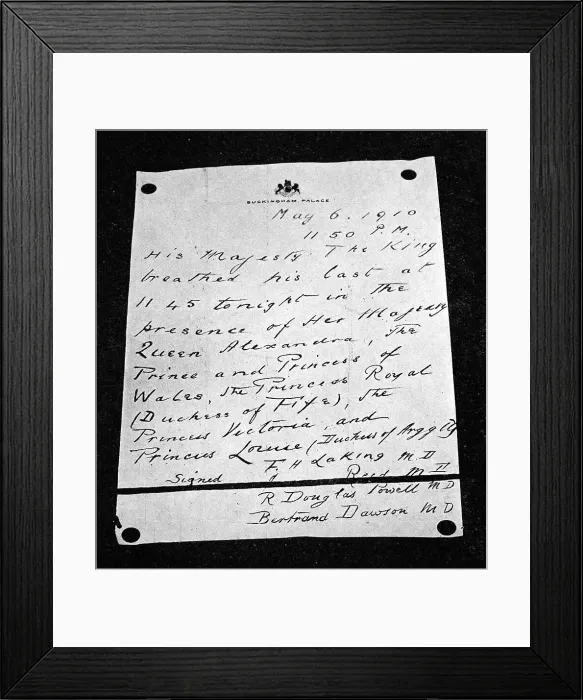 BUCKINGHAM PALACE
May 6. 1910
11 50 P.M.
His Majesty The King
breathed his last at
11 45 tonight in the
presence of Her Majesty
Queen Alexandra, The
Prince and Princess of
Wales, The Princess Royal
(Duchess of Fife), The
Princess Victoria, and
Princess Louise (Duchess of Argyll)
F. H Laking M.D
Signed Reid M D
R Douglas Powell M D
Bertrand Dawson M D